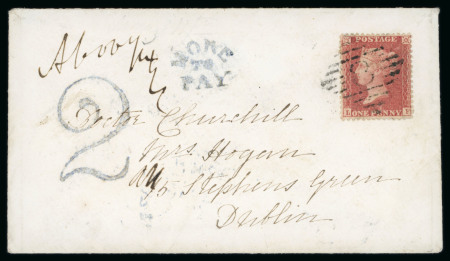 Above
MORE
TO
PAY
POSTAGE
ONE PENNY
2
Doctor Churchill
Mrs Hogan
15 Stephens Green
Dublin